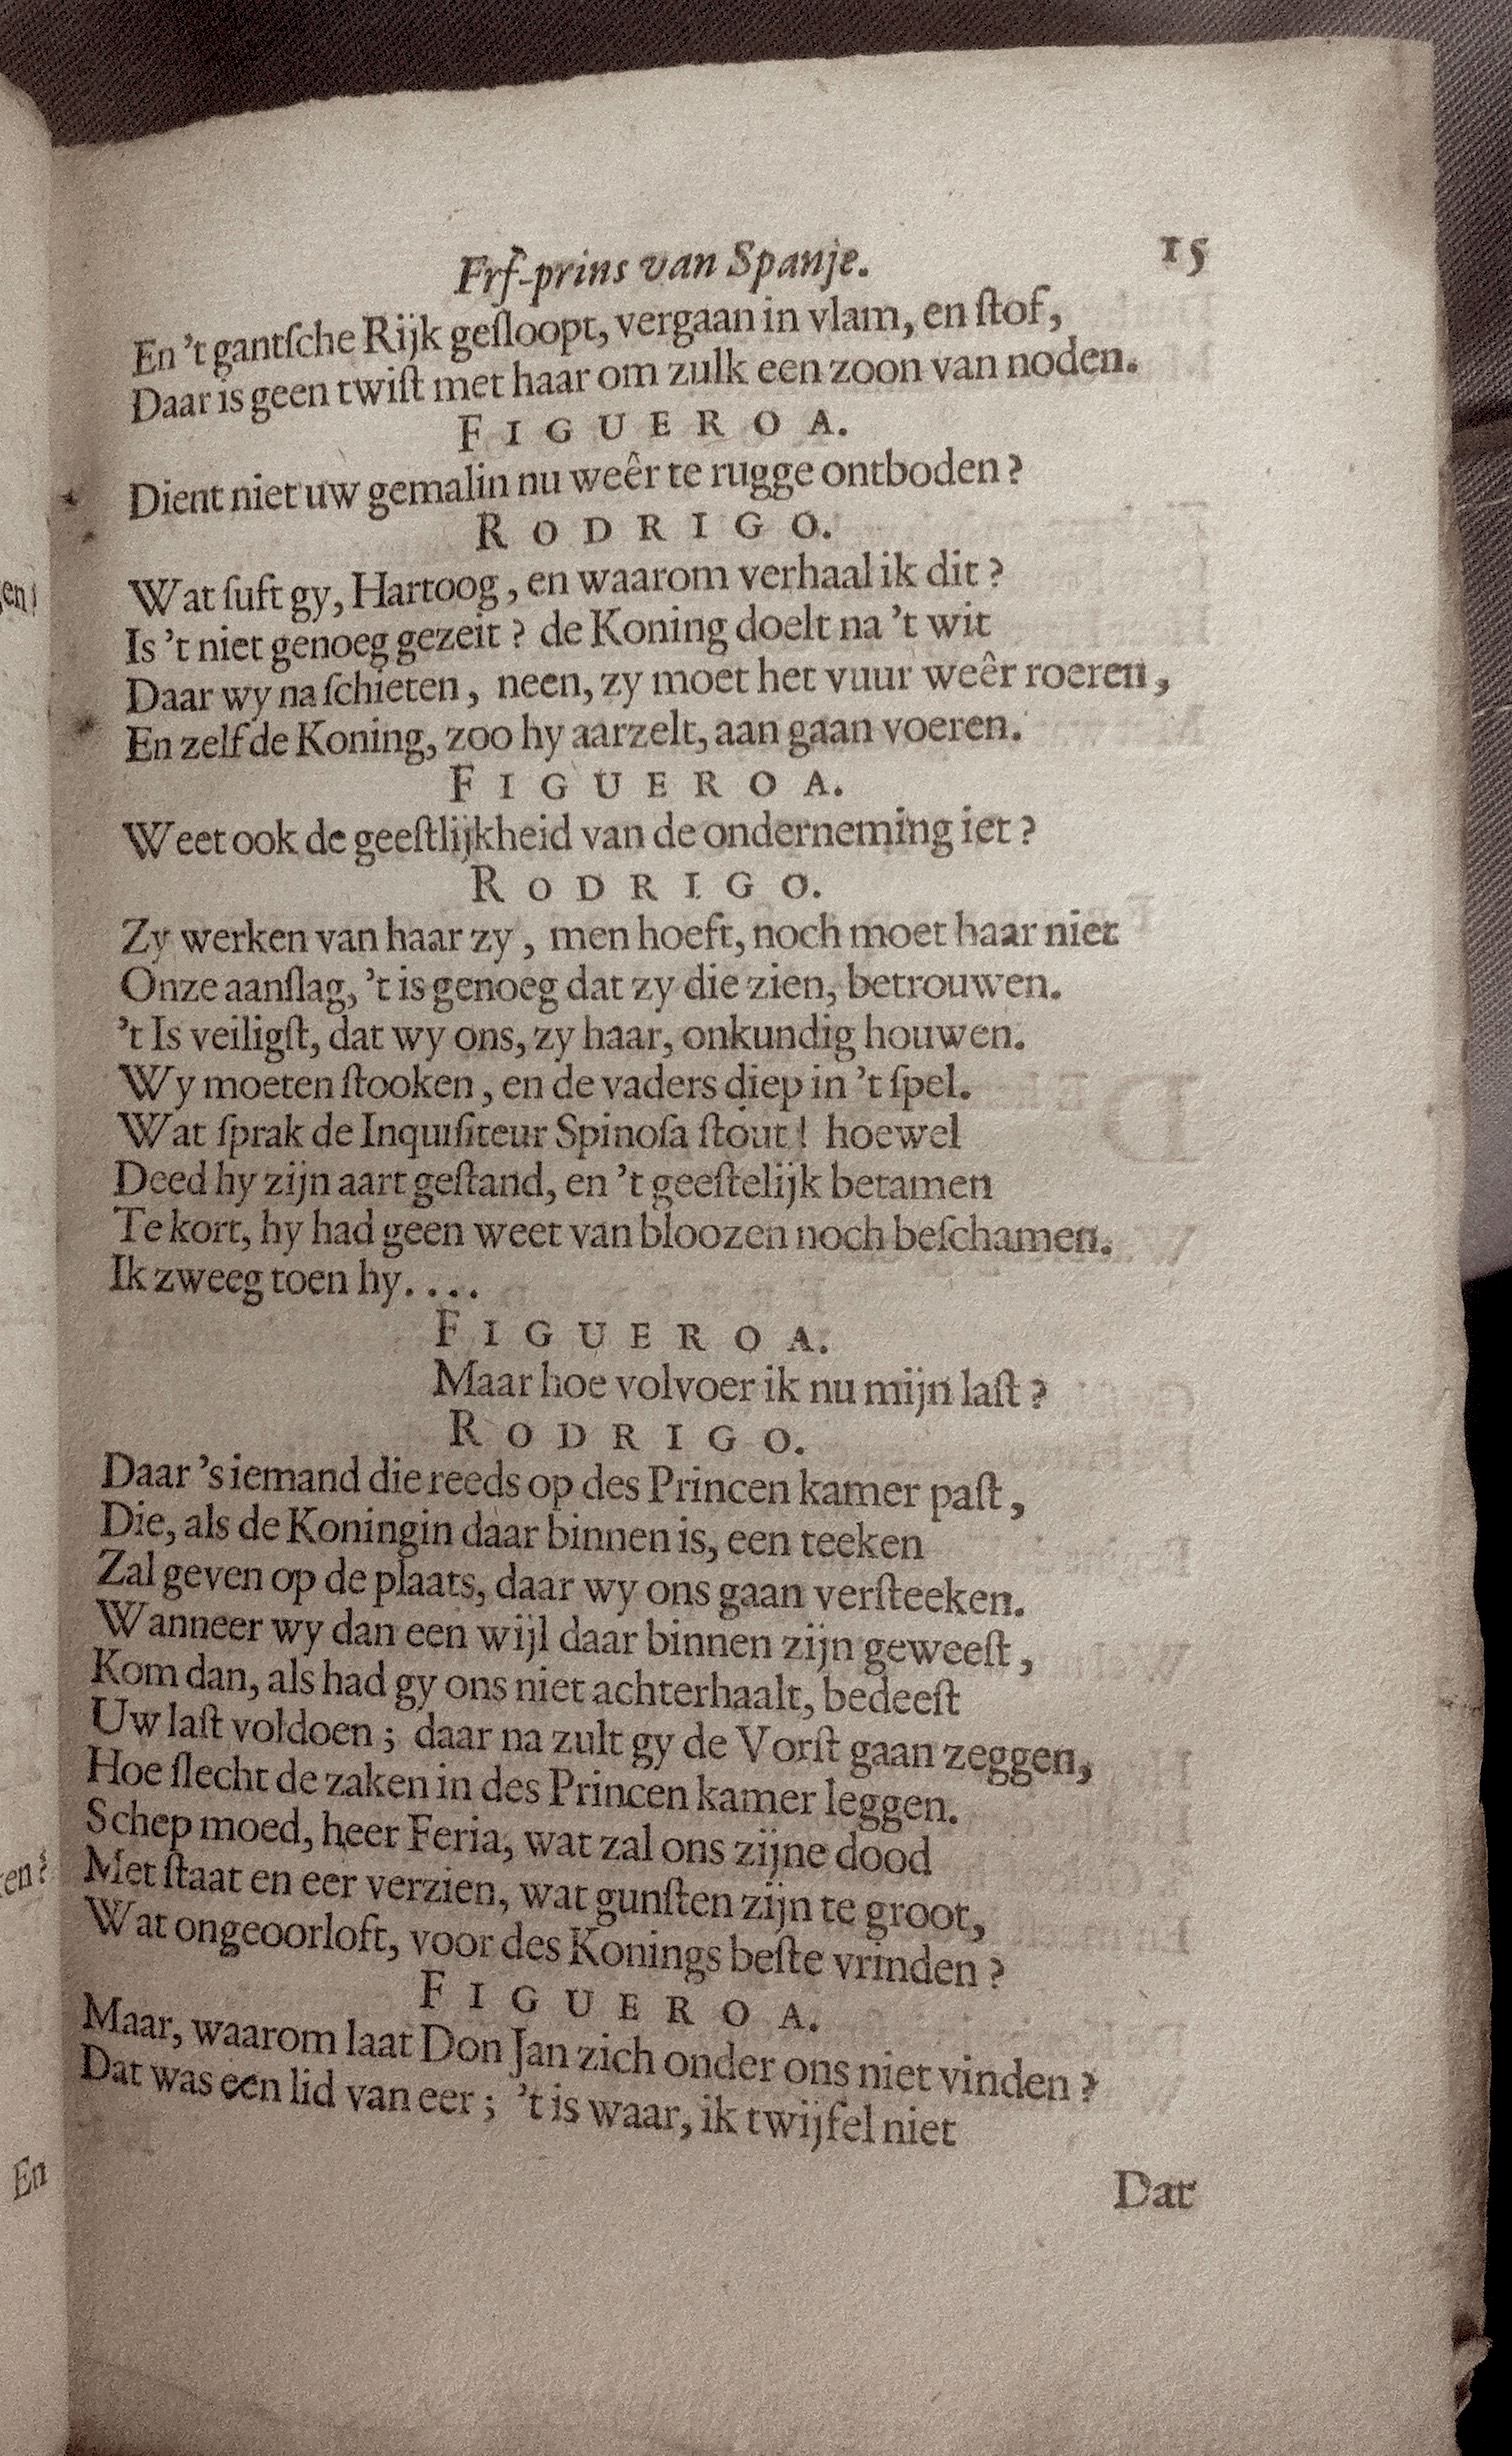 Erf-prins van Spanje. 15
En 't gantſche Rijk geſloopt, vergaan in vlam, en ſtof,
Daar is geen twiſt met haar om zulk een zoon van noden.
FIGUEROA.
Dient niet uw gemalin nu weêr te rugge ontboden?
RODRIGO.
Wat ſuft gy, Hartoog, en waarom verhaal ik dit?
Is 't niet genoeg gezeit? de Koning doelt na 't wit
Daar wy na ſchieten, neen, zy moet het vuur weêr roeren,
En zelf de Koning, zoo hy aarzelt, aan gaan voeren.
FIGUEROA.
Weet ook de geeſtlijkheid van de onderneming iet?
RODRIGO.
Zy werken van haar zy, men hoeft, noch moet haar niet
Onze aanſlag, 't is genoeg dat zy die zien, betrouwen.
't Is veiligſt, dat wy ons, zy haar, onkundig houwen.
Wy moeten ſtooken, en de vaders diep in 't ſpel.
Wat ſprak de Inquiſiteur Spinoſa ſtout! hoewel
Deed hy zijn aart geſtand, en 't geeſtelijk betamen
Te kort, hy had geen weet van bloozen noch beſchamen.
Ik zweeg toen hy....
FIGUEROA.
Maar hoe volvoer ik nu mijn laſt?
RODRIGO.
Daar 's iemand die reeds op des Princen kamer paſt,
Die, als de Koningin daar binnen is, een teeken
Zal geven op de plaats, daar wy ons gaan verſteeken.
Wanneer wy dan een wijl daar binnen zijn geweeſt,
Kom dan, als had gy ons niet achterhaalt, bedeeſt
Uw laſt voldoen; daar na zult gy de Vorſt gaan zeggen,
Hoe ſlecht de zaken in des Princen kamer leggen.
Schep moed, heer Feria, wat zal ons zijne dood
Met ſtaat en eer verzien, wat gunſten zijn te groot,
Wat ongeoorloft, voor des Konings beſte vrinden?
FIGUEROA.
Maar, waarom laat Don Jan zich onder ons niet vinden?
Dat was een lid van eer; 't is waar, ik twijfel niet
Dat
En